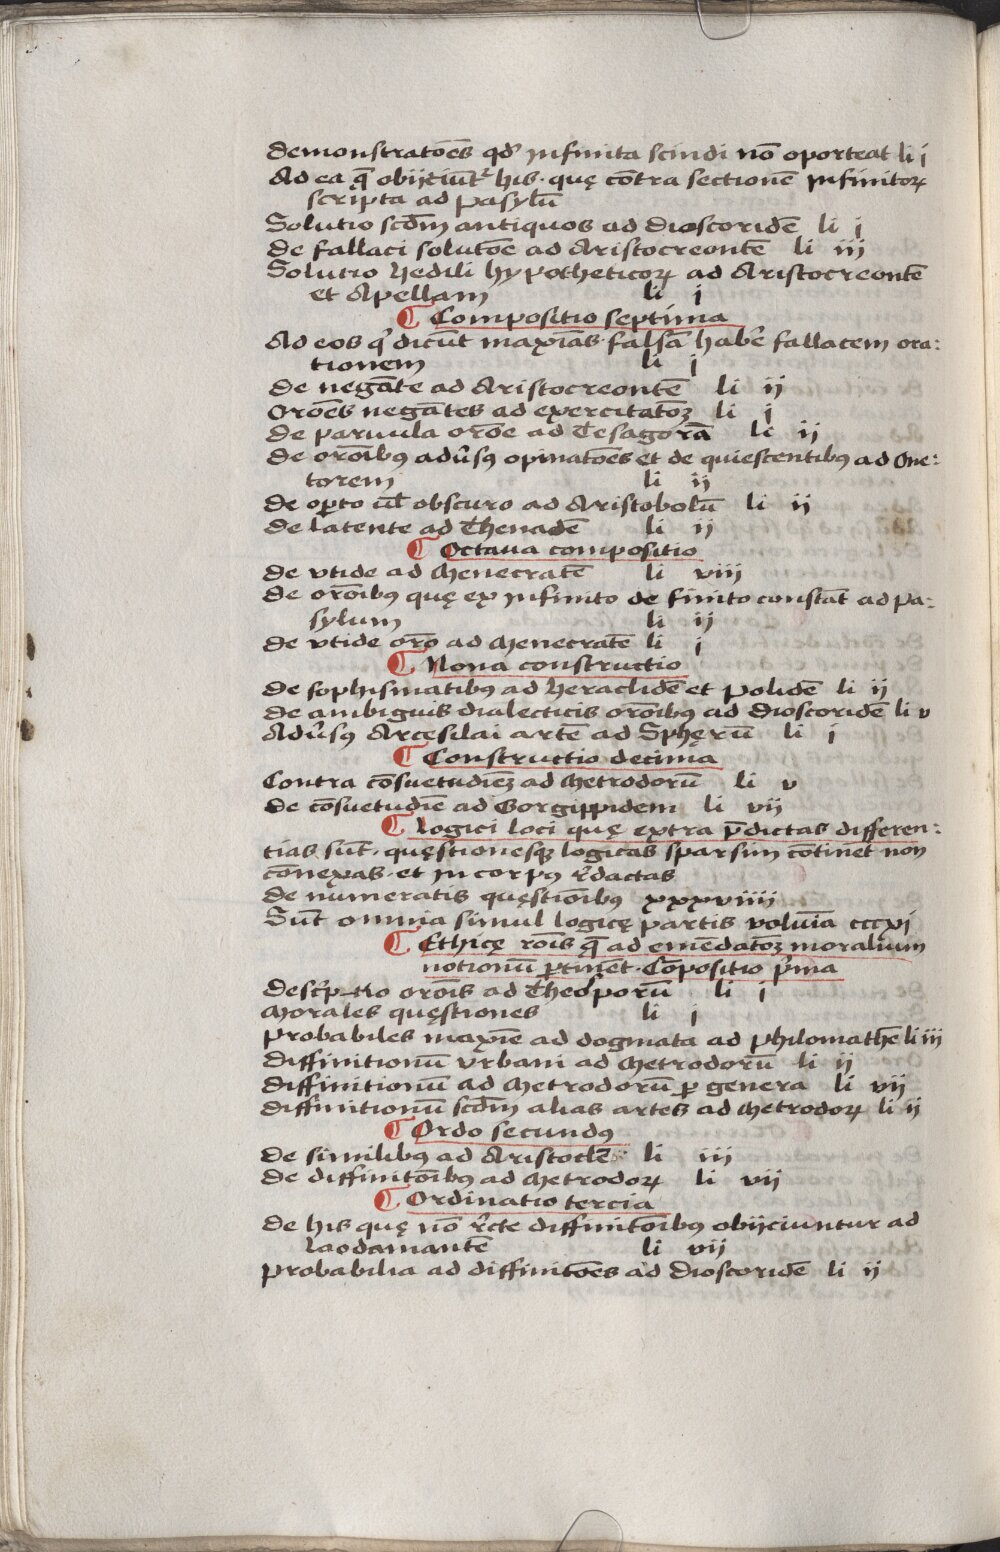 demonstratōes qd' infinita scindi nō oporteat li j
Ad ea q̄ obijciūt' his · quę cōtra sectionē infinitoꝝ
scripta ad pasylū
Solutio scd̄m antiquos ad Dioscoridē li j
de fallaci solutōe ad Aristocreontē li iij
Solutio hedili hypotheticoꝝ ad Aristocreontē
et Apellam li j
¶ Compositio septima
Ad eos q' dicūt maxīas · falsā habē fallacem ora:
tionem li j
de negāte ad Aristocreontē li ij
Orōes negātes ad exercitatōꝫ li j
de paruula orōe ad Tesagorā li ij
de orōibꝰ adūsꝰ opinatōes et de quiescentibꝰ ad One:
torem li ij
de opto ūl obscuro ad Aristobolū li ij
de latente ad Thenadē li ij
¶ Octaua compositio
de vtide ad Menecratē li viij
de orōibꝰ quę ex infinito de finito constāt ad pa:
sylum li ij
de vtide orō ad Menecratē li j
¶ Nona constructio
de sophismatibꝰ ad heraclidē et polidē li ij
de ambiguis dialecticis orōibꝰ ad Dioscoridē li v
Adūsꝰ Arcesilai artē ad Sphęrū li j
¶ Constructio decima
Contra cōsuetudiēꝫ ad Metrodorū li v
de cōsuetudīe ad Gorgippidem li vij
¶ logici loci quę extra p̄dictas differen:
tias sūt · quęstionesqꝫ logicas sparsim cōtinēt non
cōnexas · et in corpꝰ r̄dactas
de numeratis quęstiōibꝰ xxxviiij
Sūt omnia simul logicę partis volūīa cccxj
¶ Ethicę rōis q̄ ad emēdatōꝫ moralium
notionū ꝑtinēt · Cōpositio p'ma
descp'tio orōis ad Theoporū li j
Morales quęstiones li j
probabiles maxīe ad dogmata ad philomathē li iij
diffinitionū vrbani ad Metrodorū li ij
diffinitionū ad Metrodorū ꝑ genera li vij
diffinitionū scd̄m alias artes ad Metrodoꝝ li ij
¶ Ordo secundꝰ
de similibꝰ ad Aristoclē li iij
de diffinitōibꝰ ad Metrodoꝝ li vij
¶ Ordinatio tercia
de his quę nō r̄cte diffinitōibꝰ obijciuntur ad
laodamantē li vij
probabilia ad diffinitōes ad Dioscoridē li ij